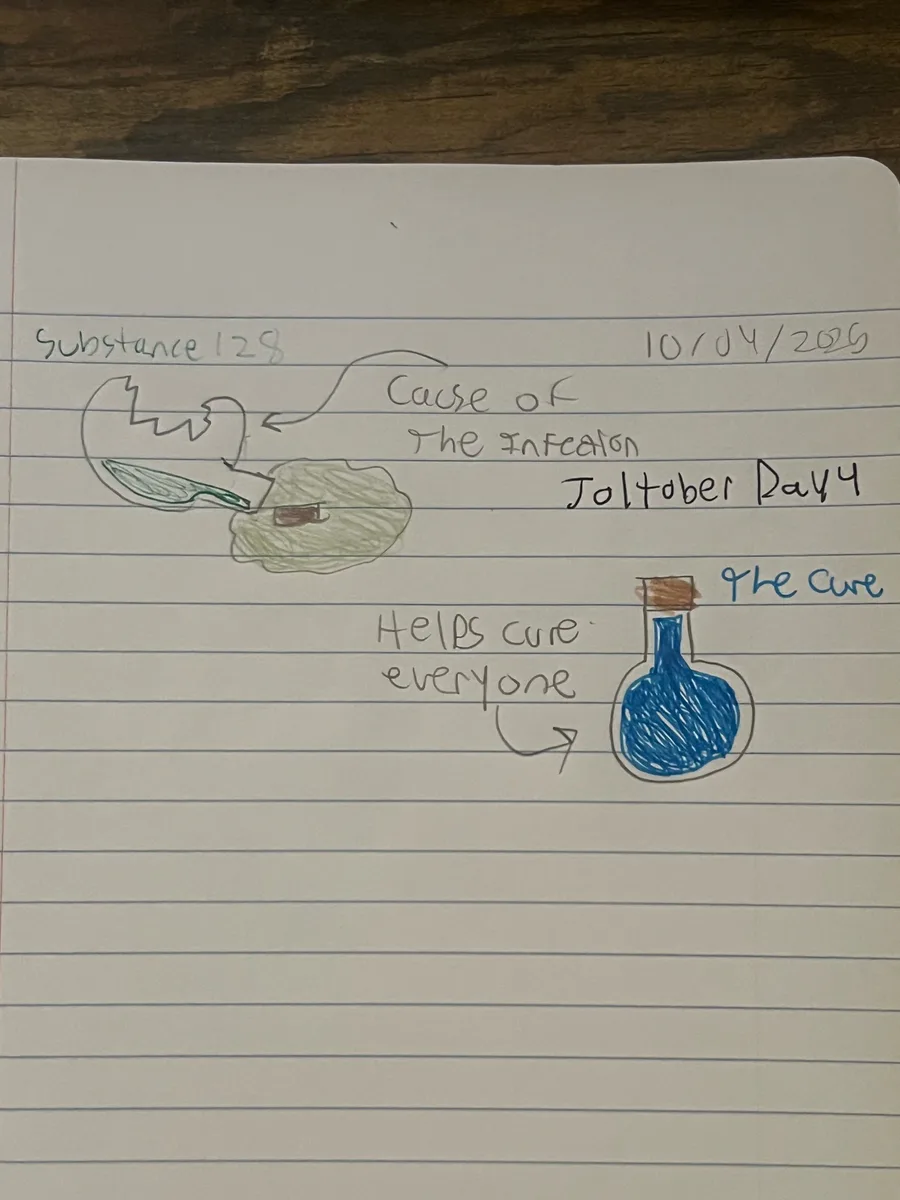 Substance 128
10/04/2025
Cacse of
The Infection
Joltober Day 4
The Cure
Helps cure
everyone